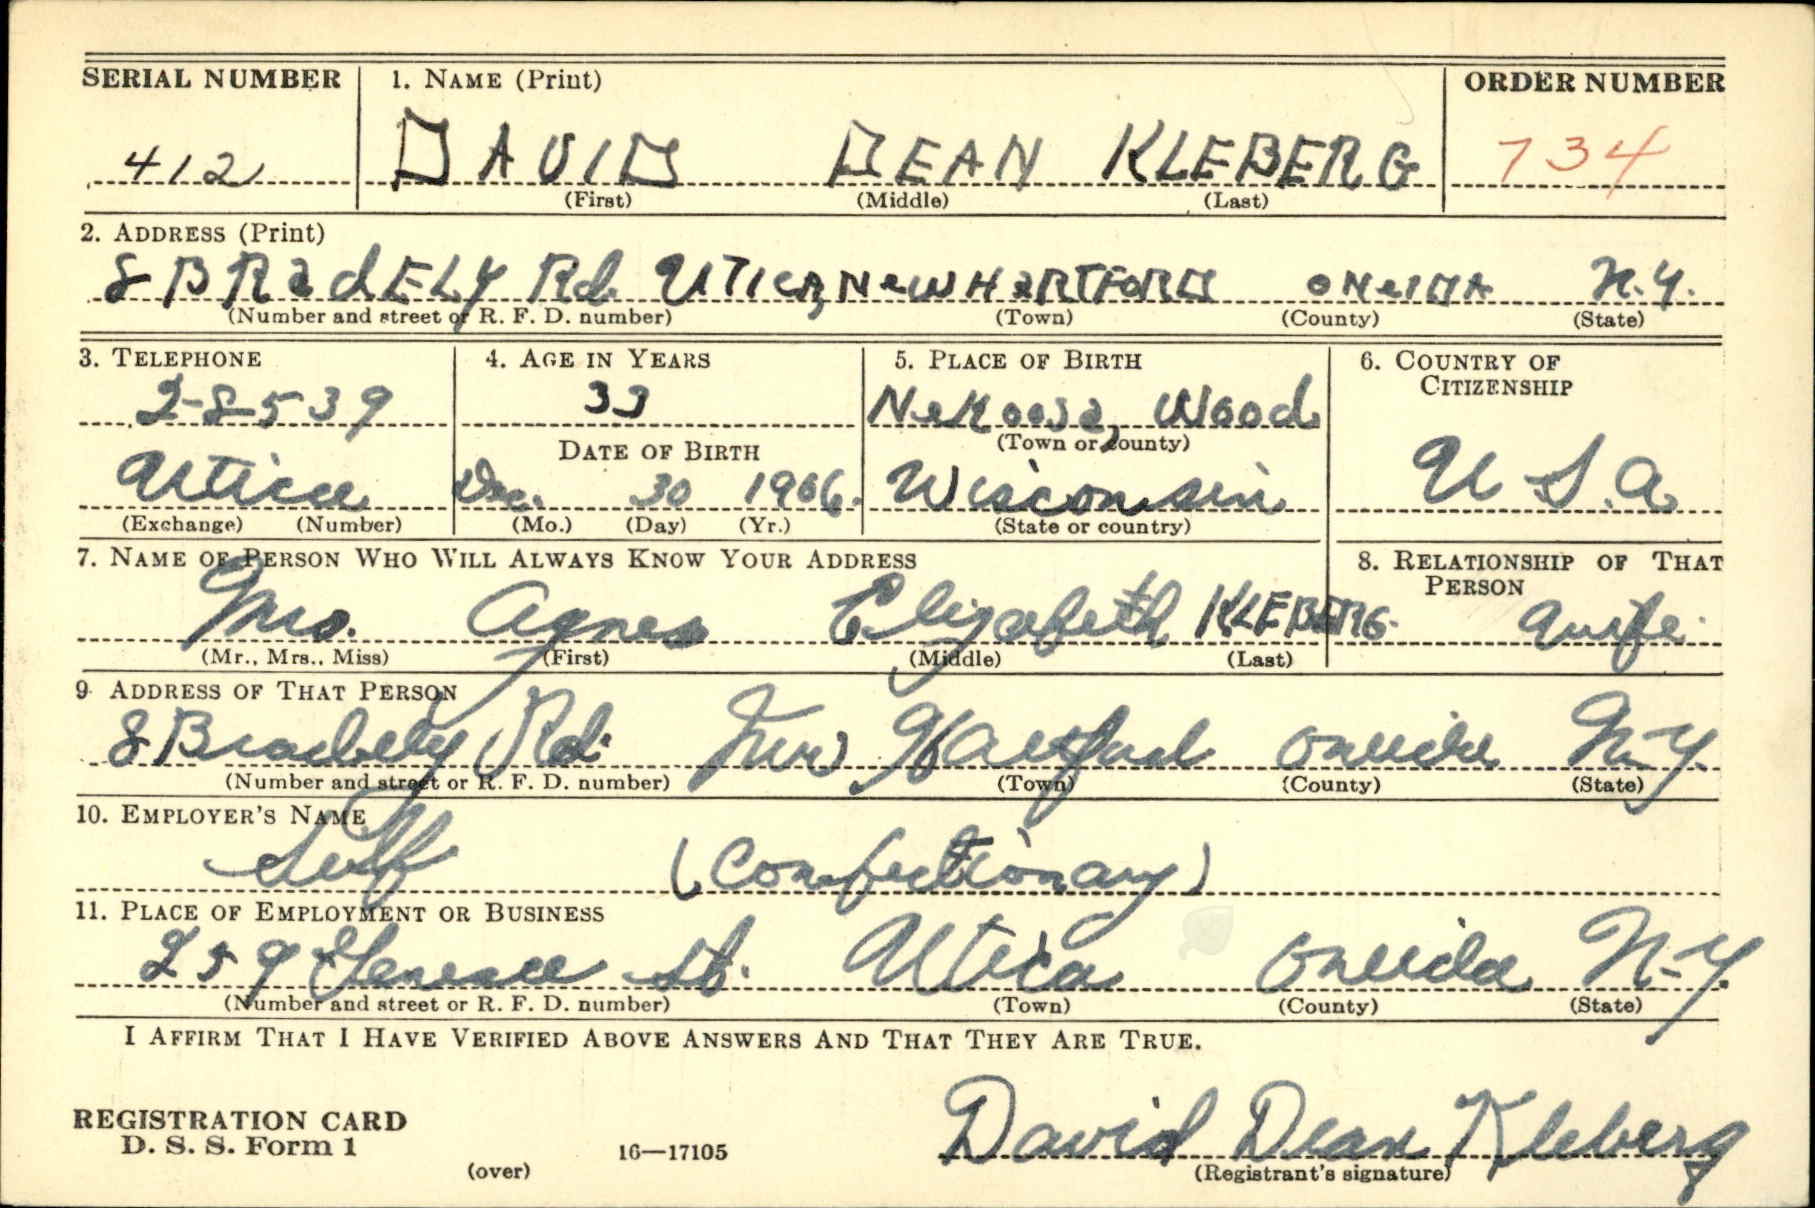 SERIAL NUMBER 1. NAME (Print) ORDER NUMBER
412 DAVID DEAN KLEBERG 734
(First) (Middle) (Last)
2. ADDRESS (Print)
8 BRadELY Rd. UTICa, NeW HaRTFORD ONeIDA N.Y.
(Number and street or R. F. D. number) (Town) (County) (State)
3. TELEPHONE 4. AGE IN YEARS 5. PLACE OF BIRTH 6. COUNTRY OF CITIZENSHIP
2-8539 33 Nekoosa, Wood
DATE OF BIRTH (Town or county)
Utica Dec. 30 1906. Wisconsin U.S.A
(Exchange) (Number) (Mo.) (Day) (Yr.) (State or country)
7. NAME OF PERSON WHO WILL ALWAYS KNOW YOUR ADDRESS 8. RELATIONSHIP OF THAT PERSON
Mrs. Agnes Elizabeth KLEBERG. wife.
(Mr., Mrs., Miss) (First) (Middle) (Last)
9. ADDRESS OF THAT PERSON
8 Bradely Rd. New Hartford Oneida N-Y.
(Number and street or R. F. D. number) (Town) (County) (State)
10. EMPLOYER'S NAME
Self (Confectionary)
11. PLACE OF EMPLOYMENT OR BUSINESS
259 Genesee St. Utica Oneida N-Y.
(Number and street or R. F. D. number) (Town) (County) (State)
I AFFIRM THAT I HAVE VERIFIED ABOVE ANSWERS AND THAT THEY ARE TRUE.
David Dean Kleberg
REGISTRATION CARD
D. S. S. Form 1 16—17105
(over) (Registrant's signature)